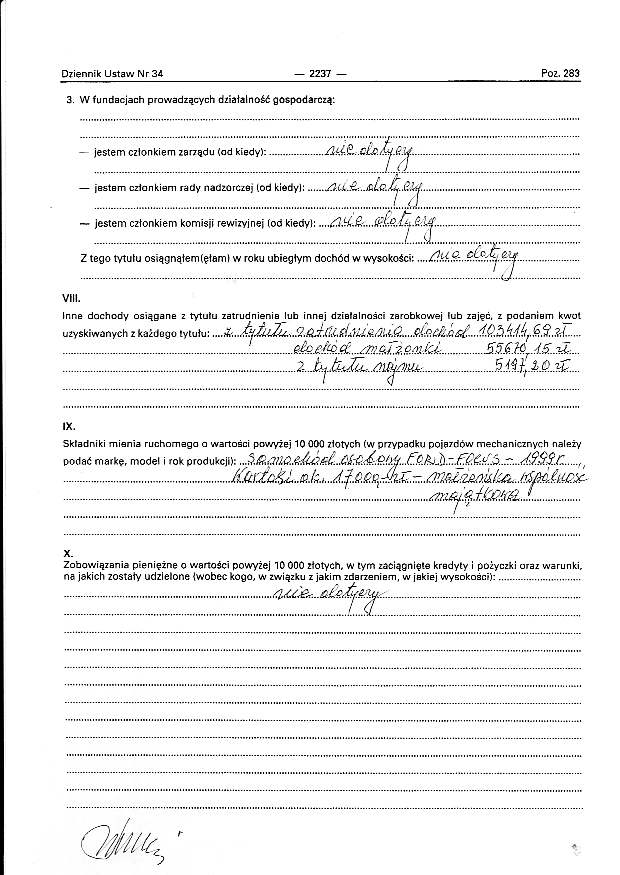 Dziennik Ustaw Nr 34 — 2237 — Poz. 283
3. W fundacjach prowadzących działalność gospodarczą:
— jestem członkiem zarządu (od kiedy): nie dotyczy
— jestem członkiem rady nadzorczej (od kiedy): nie dotyczy
— jestem członkiem komisji rewizyjnej (od kiedy): nie dotyczy
Z tego tytułu osiągnąłem(ęłam) w roku ubiegłym dochód w wysokości: nie dotyczy
VIII.
Inne dochody osiągane z tytułu zatrudnienia lub innej działalności zarobkowej lub zajęć, z podaniem kwot
uzyskiwanych z każdego tytułu: z tytułu zatrudnienia dochód 103414,69 zł
dochód małżonki 55670,15 zł
z tytułu najmu 5197,20 zł
IX.
Składniki mienia ruchomego o wartości powyżej 10 000 złotych (w przypadku pojazdów mechanicznych należy
podać markę, model i rok produkcji): samochód osobowy FORD-FOCUS - 1999 r.,
wartości ok. 17000,-zł - małżeńska wspólność
majątkowa
X.
Zobowiązania pieniężne o wartości powyżej 10 000 złotych, w tym zaciągnięte kredyty i pożyczki oraz warunki,
na jakich zostały udzielone (wobec kogo, w związku z jakim zdarzeniem, w jakiej wysokości):
nie dotyczy